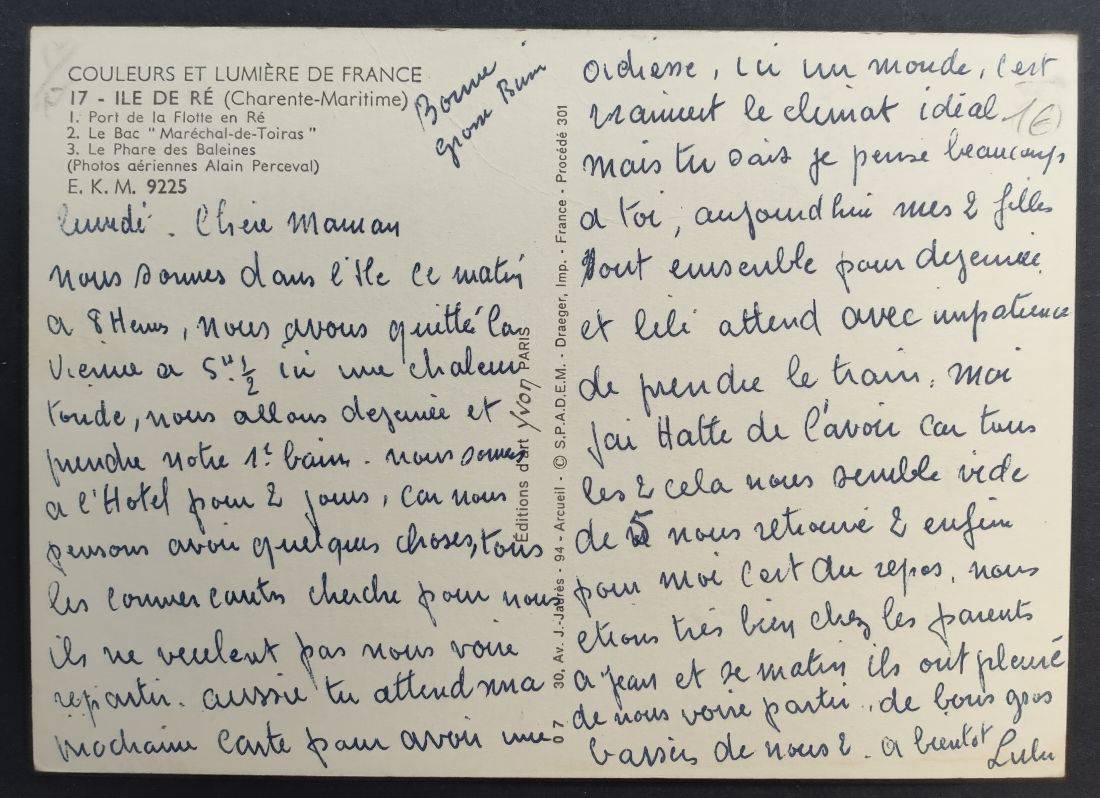 COULEURS ET LUMIÈRE DE FRANCE
17 - ILE DE RÉ (Charente-Maritime)
1. Port de la Flotte en Ré
2. Le Bac "Maréchal-de-Toiras"
3. Le Phare des Baleines
(Photos aériennes Alain Perceval)
E. K. M. 9225
Bonne
grosse Bum
1€
lundi. Chère Maman
nous sommes dans l'ile ce matin
a 8 Heures, nous avons quitté la
Vienne a 5H 1/2 ici une chaleur
toride, nous allons dejeunée et
prendre notre 1er bain. nous sommes
a l'Hotel pour 2 jours, car nous
pensons avoir quelques choses, tous
les commercants cherche pour nous
ils ne veulent pas nous voire
repartir. aussie tu attend ma
prochaine carte pour avoir une
Éditions d'art yvon PARIS
30, Av. J.-Jaurès - 94 - Arcueil - © S.P.A.D.E.M. - Draeger, Imp. - France - Procédé 301
0 7
adresse, ici un monde, c'est
vraiment le climat idéal
mais tu sais je pense beaucoup
a toi, aujourdhui mes 2 filles
sont ensemble pour dejeunée
et lili attend avec impatience
de prendre le train, moi
j'ai Hatte de l'avoir car tous
les 2 cela nous semble vide
de 5 nous retrouvé 2 enfin
pour moi c'est du repos, nous
etions très bien chez les parents
a jean et se matin ils ont pleuré
de nous voire partir. de bons gros
baisés de nous 2. a bientot
Lulu